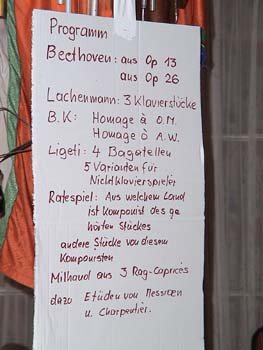 Programm
Beethoven: aus Op 13
aus Op 26
Lachenmann: 3 Klavierstücke
B.K: Homage à O.M.
Homage à A.W.
Ligeti: 4 Bagatellen
5 Varianten für
Nichtklavierspieler
Ratespiel: Aus welchem Land
ist Komponist des ge
hörten Stückes
andere Stücke von diesem
Komponisten
Milhaud aus 3 Rag-Caprices
dazo Etüden von Messiaen
u. Charpentier.